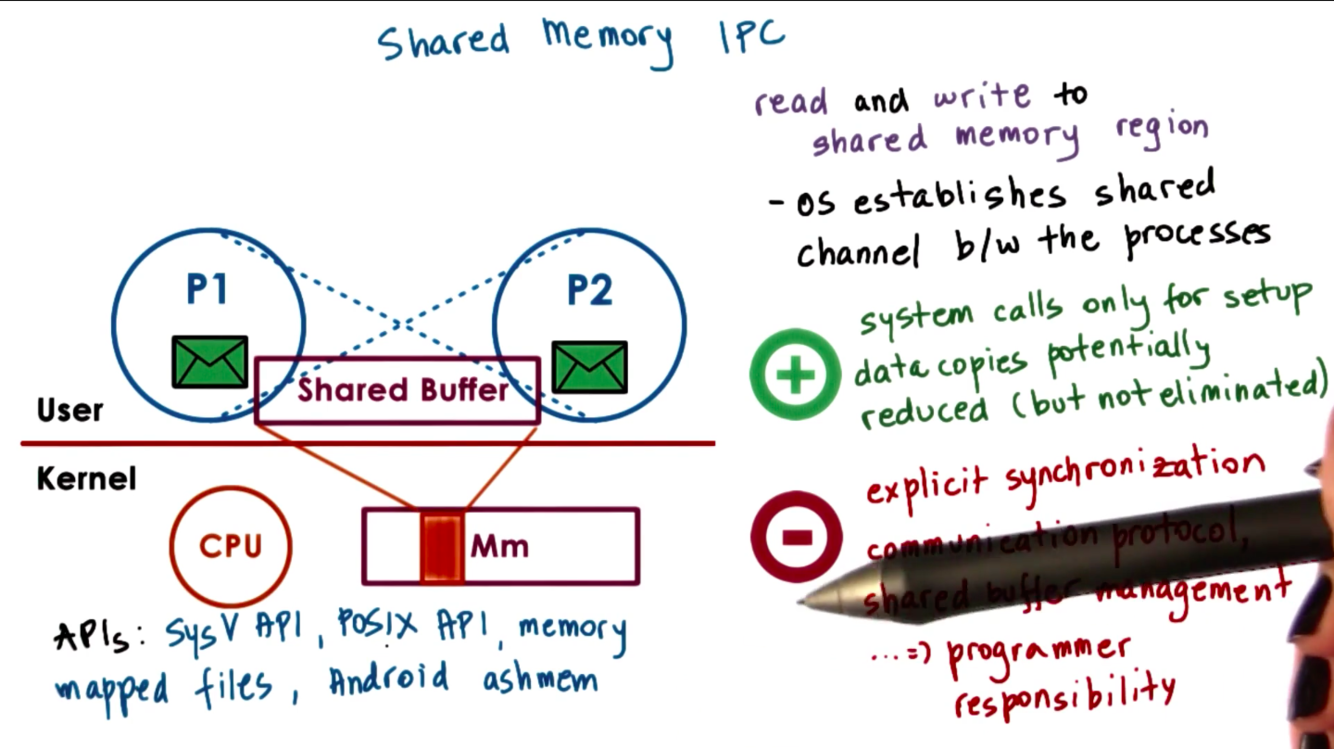 Shared Memory IPC
read and write to
shared memory region
- OS establishes shared
channel b/w the processes
P1
P2
Shared Buffer
User
Kernel
CPU
Mm
APIs: SysV API, POSIX API, memory
mapped files, Android ashmem
+
system calls only for setup
data copies potentially
reduced (but not eliminated)
-
explicit synchronization
communication protocol,
shared buffer management
...=> programmer
responsibility